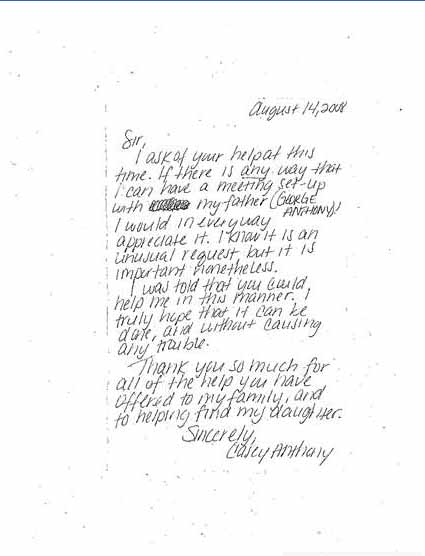 August 14, 2008
Sir,
I ask of your help at this
time. If there is any way that
I can have a meeting set-up
with my father (GEORGE
ANTHONY),
I would in everyway
appreciate it. I know it is an
unusual request, but it is
important nonetheless.
I was told that you could,
help me in this manner. I
truly hope that it can be
date, and without causing
any trouble.
Thank you so much for
all of the help you have
offered to my family, and
to helping find my daughter.
Sincerely,
Casey Anthony